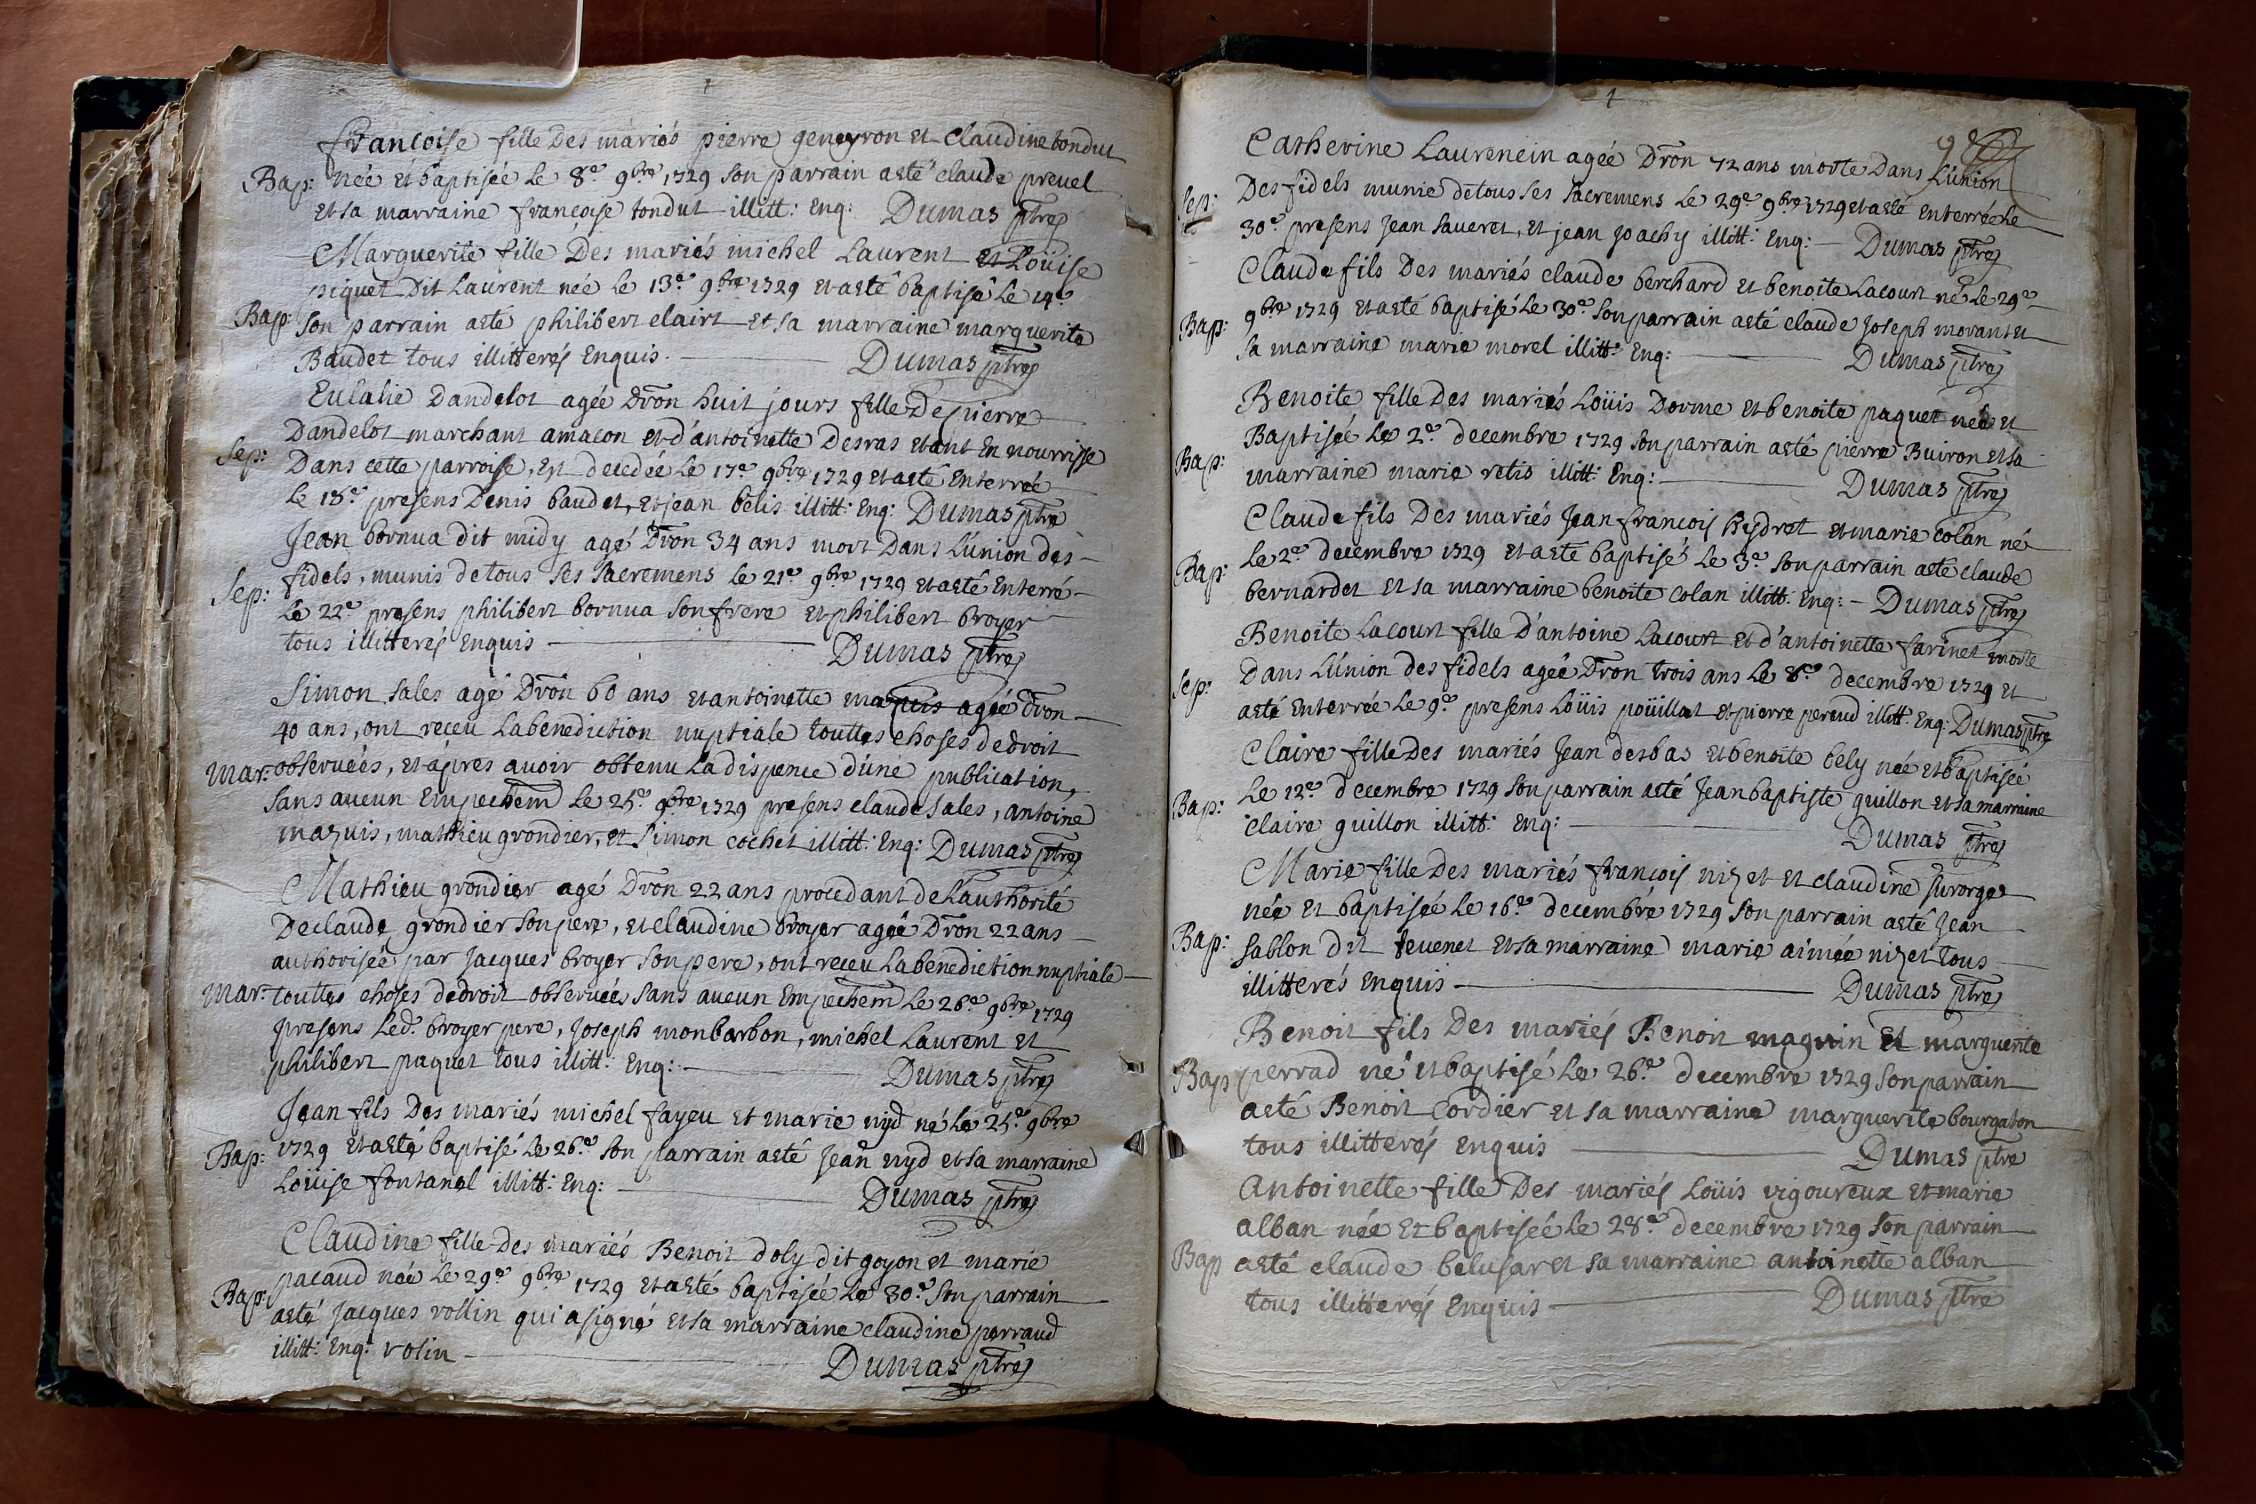 françoise fille Des mariés pierre geneyron et claudine tondut
Bap: née et baptisée le 8e 9bre 1729 son parrain aeté claude prevel
et sa marraine françoise tondut illitt: Enq: Dumas ptre
Marguerite fille Des mariés michel Laurent et Loüise
piquet Dit Laurent née le 13e 9bre 1729 et aeté baptisé le 14e
Bap: son parrain aeté philibert clairt et sa marraine marguerite
Baudet tous illitterés Enquis. Dumas ptre
Eulalie Dandelot agée Dron huit jours fille De pierre
Dandelot marchant amacon et d'antoinette Desras etant En nourrisse
Sep: Dans cette parroise, est decedée le 17e 9bre 1729 et aeté Enterreé
Le 18e presens Denis baudet, et jean belis illitt: Enq: Dumas ptre
Jean bornua dit midy agé Dron 34 ans mort Dans L'union des
Sep: fidels, munis de tous ses sacremens le 21e 9bre 1729 et aeté Enterré
Le 22e presens philibert bornua son frere et philibert broyer
tous illitterés Enquis Dumas ptre
Simon sales agé Dron 60 ans et antoinette mazuis agée dron
40 ans, ont reçeu La benediction nuptiale touttes choses de droit
mar: observeés, et apres avoir obtenu La dispence d'une publication,
sans aucun Empechem le 25e 9bre 1729 presens claude sales, antoine
mazuis, mathieu grondier, et Simon cochet illitt: Enq: Dumas ptre
Mathieu grondier agé Dron 22 ans procedant de L'authorité
De claude grondier son pere, et claudine broyer agée Dron 22 ans
authorisée par Jacques broyer son pere, ont receu La benediction nuptiale
mar: touttes choses de droit observeés sans aucun Empechem Le 26e 9bre 1729
presens Led. broyer pere, Joseph monbarbon, michel Laurent et
philibert paquet tous illitt: Enq: Dumas ptre
Jean fils Des mariés michel fayeu et marie nyd né le 25e 9bre
Bap: 1729 et aeté baptisé le 26e son parrain aeté Jean nyd et sa marraine
Loüise fontanel illitt: Enq: Dumas ptre
Claudine fille Des mariés Benoit doly dit goyon et marie
pacaud née le 29e 9bre 1729 et aeté baptisée le 30e son parrain
Bap: aeté Jacques rollin qui a signé et sa marraine claudine perraud
illitt: Enq: rolin Dumas ptre
Catherine Laurencin agée Dron 72 ans morte Dans L'union
Sep: Des fidels munie de tous ses sacremens le 29e 9bre 1729 et aeté Enterrée le
30e presens Jean saveret, et jean joachy illitt: Enq: Dumas ptre
Claude fils Des mariés claude berchard et benoite Lacourt né le 29e
Bap: 9bre 1729 et aeté baptisé le 30e son parrain aeté claude Joseph morant et
sa marraine marie morel illitt: Enq: Dumas ptre
Benoite fille Des mariés Loüis Dorme et benoite paquet née et
Baptisée le 2e decembre 1729 son parrain aeté pierre Buiron et sa
Bap: marraine marie retis illitt: Enq: Dumas ptre
Claude fils Des mariés Jean françois hydret et marie colan né
Bap: Le 2e decembre 1729 et aeté baptisé le 3e son parrain aeté claude
bernardet et sa marraine benoite colan illitt: Enq: Dumas ptre
Benoite Lacourt fille D'antoine Lacourt et d'antoinette farinet morte
Sep: Dans L'union des fidels agée Dron trois ans le 8e decembre 1729 et
aeté Enterrée le 9e presens Loüis poüillat et pierre peraud illitt: Enq: Dumas ptre
Claire fille Des mariés Jean desbas et benoite bely née et baptisée
Bap: Le 12e decembre 1729 son parrain aeté Jean baptiste guillon et sa marraine
claire guillon illitt: Enq: Dumas ptre
Marie fille Des mariés françois nizet et claudine surorge
née et baptisée le 16e decembre 1729 son parrain aeté Jean
Bap: sablon dit tevenet et sa marraine marie aimée nizet tous
illitterés Enquis Dumas ptre
Benoit fils Des mariés Benoit maguin et marguerite
Bap perrad né et baptisé le 26e decembre 1729 son parrain
aeté Benoit Cordier et sa marraine marguerite bourgabon
tous illitterés Enquis Dumas ptre
Antoinette fille Des mariés Loüis vigoureux et marie
alban née et baptisée le 28e decembre 1729 son parrain
Bap aeté claude belusar et sa marraine antoinette alban
tous illitterés Enquis Dumas ptre